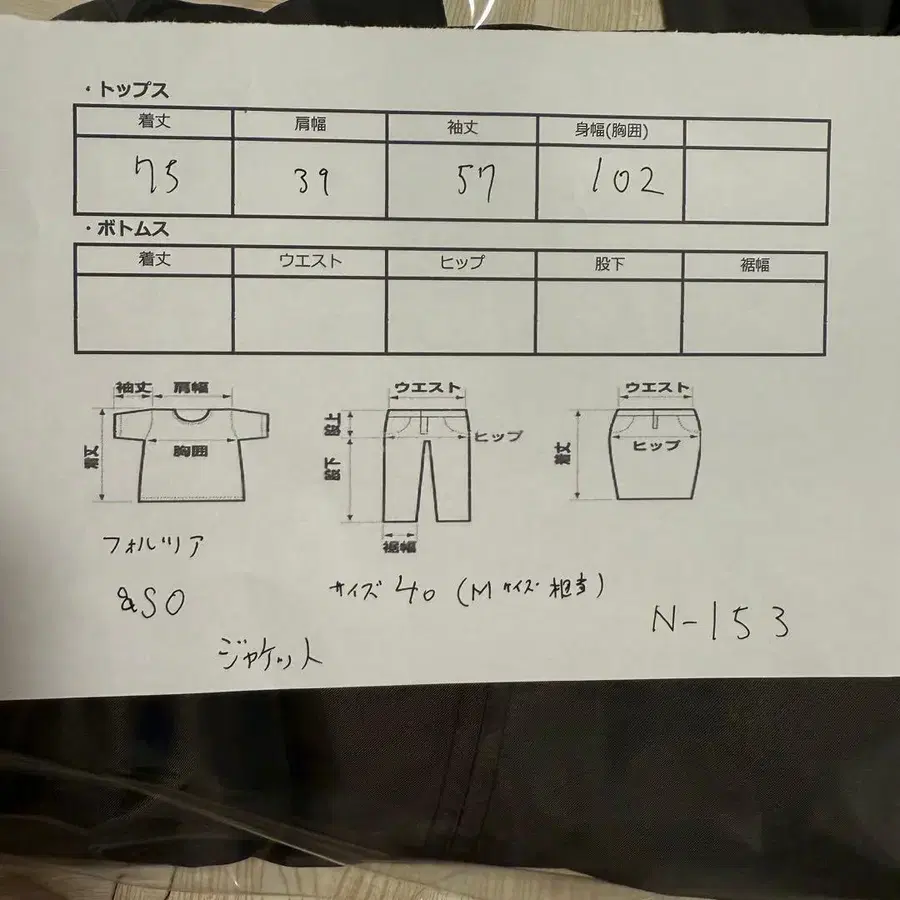 ・トップス
着丈 肩幅 袖丈 身幅(胸囲)
75 39 57 102
・ボトムス
着丈 ウエスト ヒップ 股下 裾幅
袖丈 肩幅
着丈 胸囲
ウエスト
股上 ヒップ
股下
裾幅
ウエスト
着丈 ヒップ
フォルツア
aSO
サイズ 40 (Mサイズ相当)
N-153
ジャケット